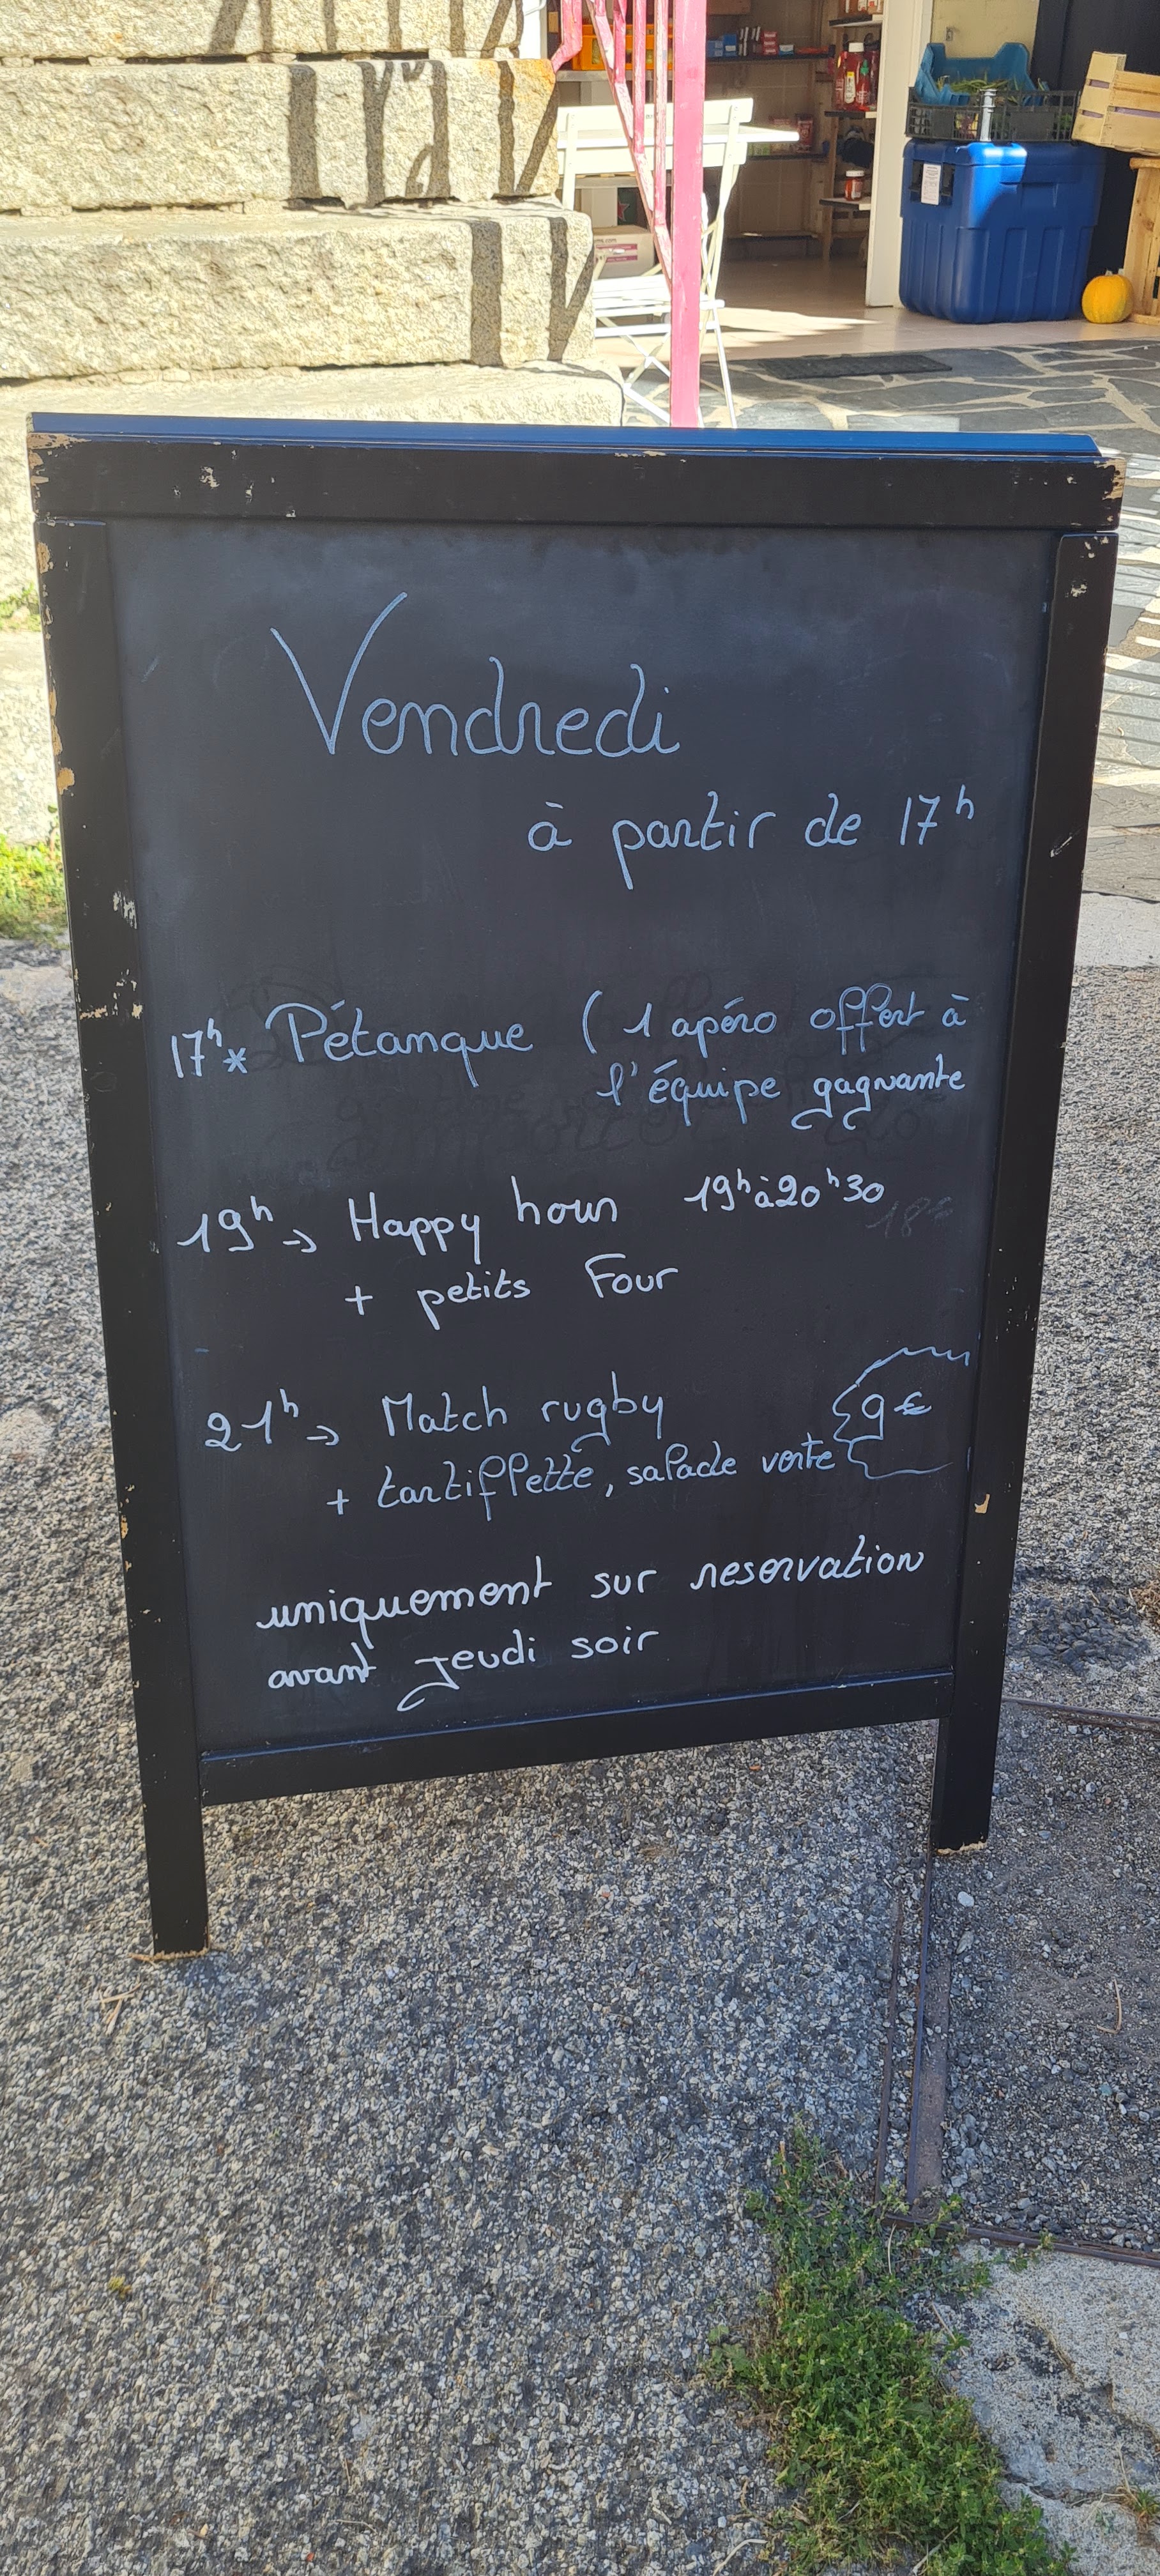 Vendredi
à partir de 17h
17h* Pétanque ( 1 apéro offert à
l'équipe gagnante
19h → Happy hour 19h à 20h30
+ petits Four
21h → Match rugby
+ tartiflette, salade verte 9€
uniquement sur reservation
avant jeudi soir